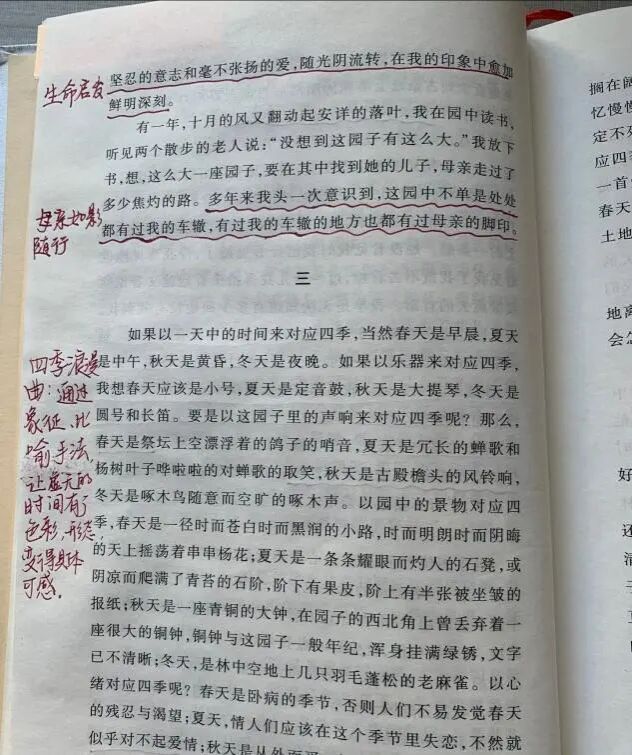 坚忍的意志和毫不张扬的爱,随光阴流转,在我的印象中愈加
鲜明深刻。
有一年,十月的风又翻动起安详的落叶,我在园中读书,
听见两个散步的老人说:“没想到这园子有这么大。”我放下
书,想,这么大一座园子,要在其中找到她的儿子,母亲走过了
多少焦灼的路。多年来我头一次意识到,这园中不单是处处
都有过我的车辙,有过我的车辙的地方也都有过母亲的脚印。
三
如果以一天中的时间来对应四季,当然春天是早晨,夏天
是中午,秋天是黄昏,冬天是夜晚。如果以乐器来对应四季,
我想春天应该是小号,夏天是定音鼓,秋天是大提琴,冬天是
圆号和长笛。要是以这园子里的声响来对应四季呢?那么,
春天是祭坛上空漂浮着的鸽子的哨音,夏天是冗长的蝉歌和
杨树叶子哗啦啦的对蝉歌的取笑,秋天是古殿檐头的风铃响,
冬天是啄木鸟随意而空旷的啄木声。以园中的景物对应四
季,春天是一径时而苍白时而黑润的小路,时而明朗时而阴晦
的天上摇荡着串串杨花;夏天是一条条耀眼而灼人的石凳,或
阴凉而爬满了青苔的石阶,阶下有果皮,阶上有半张被坐皱的
报纸;秋天是一座青铜的大钟,在园子的西北角上曾丢弃着一
座很大的铜钟,铜钟与这园子一般年纪,浑身挂满绿锈,文字
已不清晰;冬天,是林中空地上几只羽毛蓬松的老麻雀。以心
绪对应四季呢?春天是卧病的季节,否则人们不易发觉春天
的残忍与渴望;夏天,情人们应该在这个季节里失恋,不然就
似乎对不起爱情;秋天是从外面买
生命启发
母亲如影
随行
四季浪漫
曲:通过
象征、比
喻手法,
让虚无的
时间有了
色彩、形态,
变得具体
可感。
搁在
忆慢慢
定不
应四
一首
春天
土地
地离
会怎
好
清